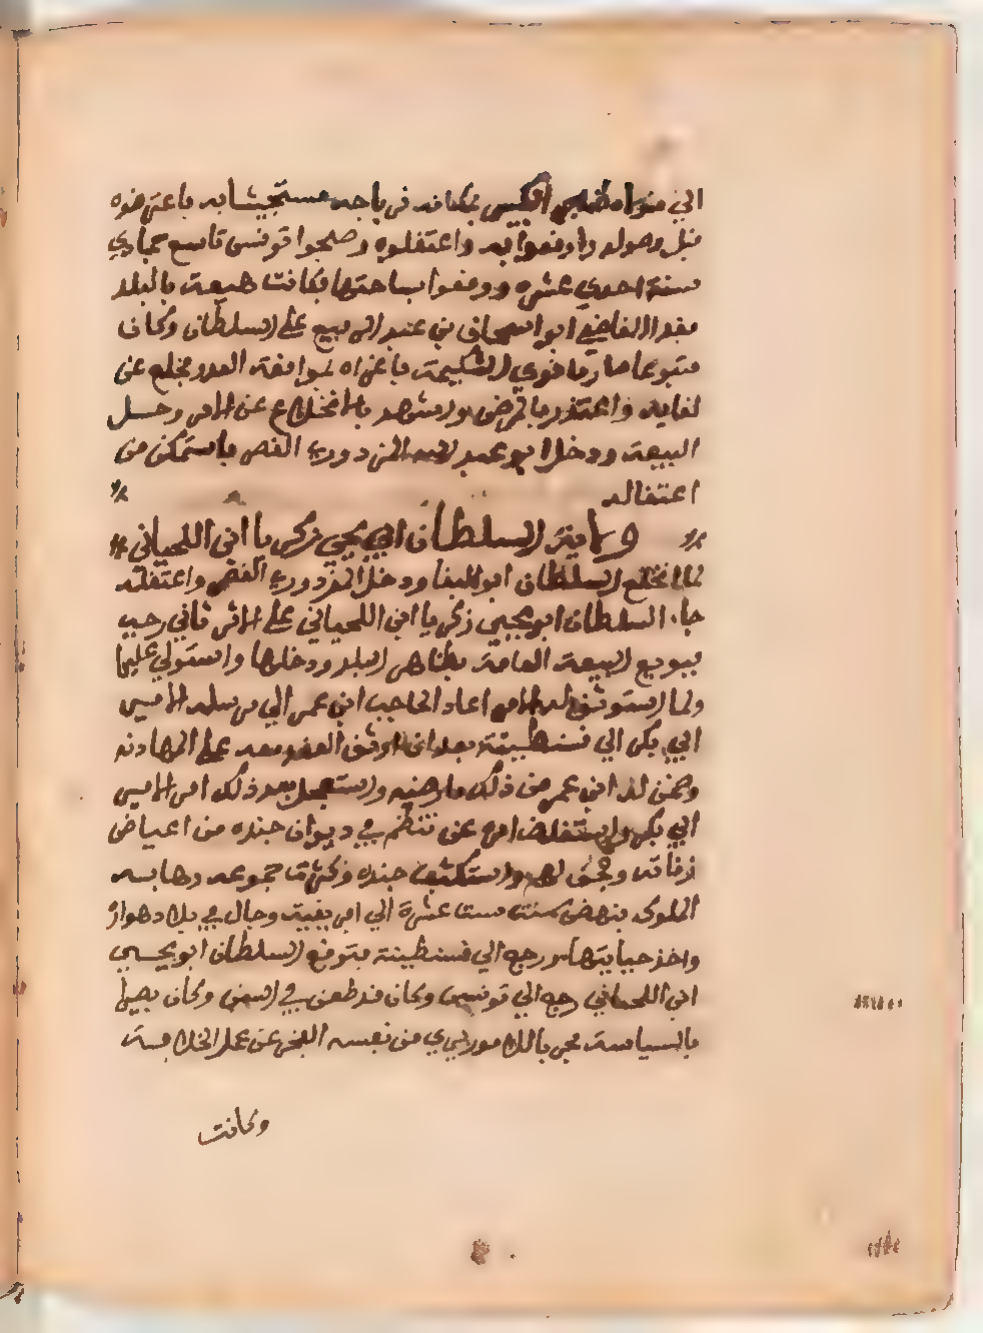 الي منزله ظافر الكبير بمكانه من باجه مستجيشا به فاعترضوه
قبل وصوله واوقعوا به واعتقلوه وصبحوا تونس تاسع جمادي
سنة احدي عشره ووقفوا بساحتها فكانت هيعة بالبلد
بعد القاضي ابو اسحاق بن عبد الرفيع علي السلطان وكان
متبوعا صارما قوي الشكيمة فاغراه بمدافعة العدو فخلع عن
لقايه واعتذر بالمرض واشهد بالانخلاع عن الامر وحل
البيعة ودخل ابو عبد الله المزدوري القصر فاستمكن من
اعتقاله
ولاية السلطان ابي يحيي زكريا ابن اللحياني
لما انخلع السلطان ابو البقا ودخل المزدوري القصر واعتقله
جاء السلطان ابو يحيي زكريا ابن اللحياني علي الاثر ثاني رجب
فبويع البيعة العامة بظاهر البلد ودخلها واستولي عليها
ولما استوثق له الامر اعاد الحاجب ابن عمر الي مرسله الامير
ابي بكر الي قسنطينة بعد ان اوثق العقد معه علي المهادنه
وضمن له ابن عمر من ذلك ما رضيه واستفحل بعد ذلك امر الامير
ابي بكر واستغلظ امره عن تنظم في ديوان جنده من اعياص
زناته ولحق لهم واستكثف جنده وكثرت جموعه وهابه
الملوك فنهض سنت ست عشرة الي افريقية وجال في بلاد هوارة
واخذ جبايتها ورجع الي قسنطينة فتوقع السلطان ابو يحيي
ابن اللحياني رجع الي تونس وكان قد طعن في السن وكان بصيرا
بالسياسة مجربا للامور يري من نفسه العجز عن حمل الخلافة
وكانت